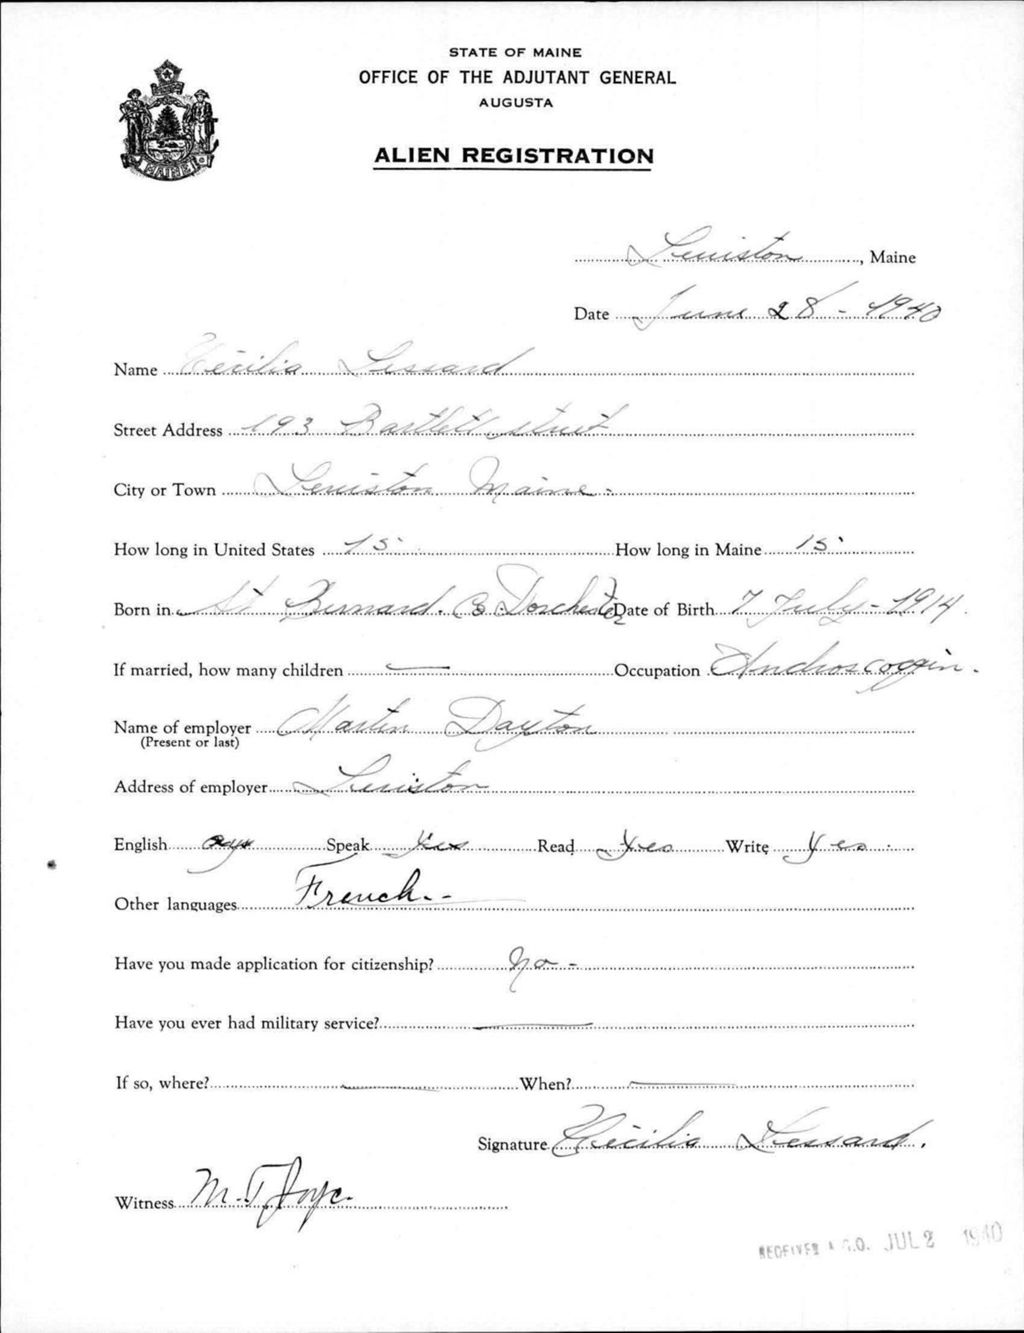 STATE OF MAINE
OFFICE OF THE ADJUTANT GENERAL
AUGUSTA
ALIEN REGISTRATION
MAINE
Lewiston, Maine
Date June 28 - 1940
Name Cécilia Lessard
Street Address 193 Bartlett street
City or Town Lewiston Maine -
How long in United States 15 How long in Maine 15
Born in St Bernard. Co. Dorchester Date of Birth 7 July - 1914.
If married, how many children — Occupation Androscoggin -
Name of employer Martin Dayton
(Present or last)
Address of employer Lewiston
English Speak Yes Read Yes Write Yes.
Other languages French. -
Have you made application for citizenship? No -
Have you ever had military service? —
If so, where? — When? —
Signature Cécilia Lessard.
Witness M. T. Joyce.
RECEIVED A.G.O. JUL 2 1940